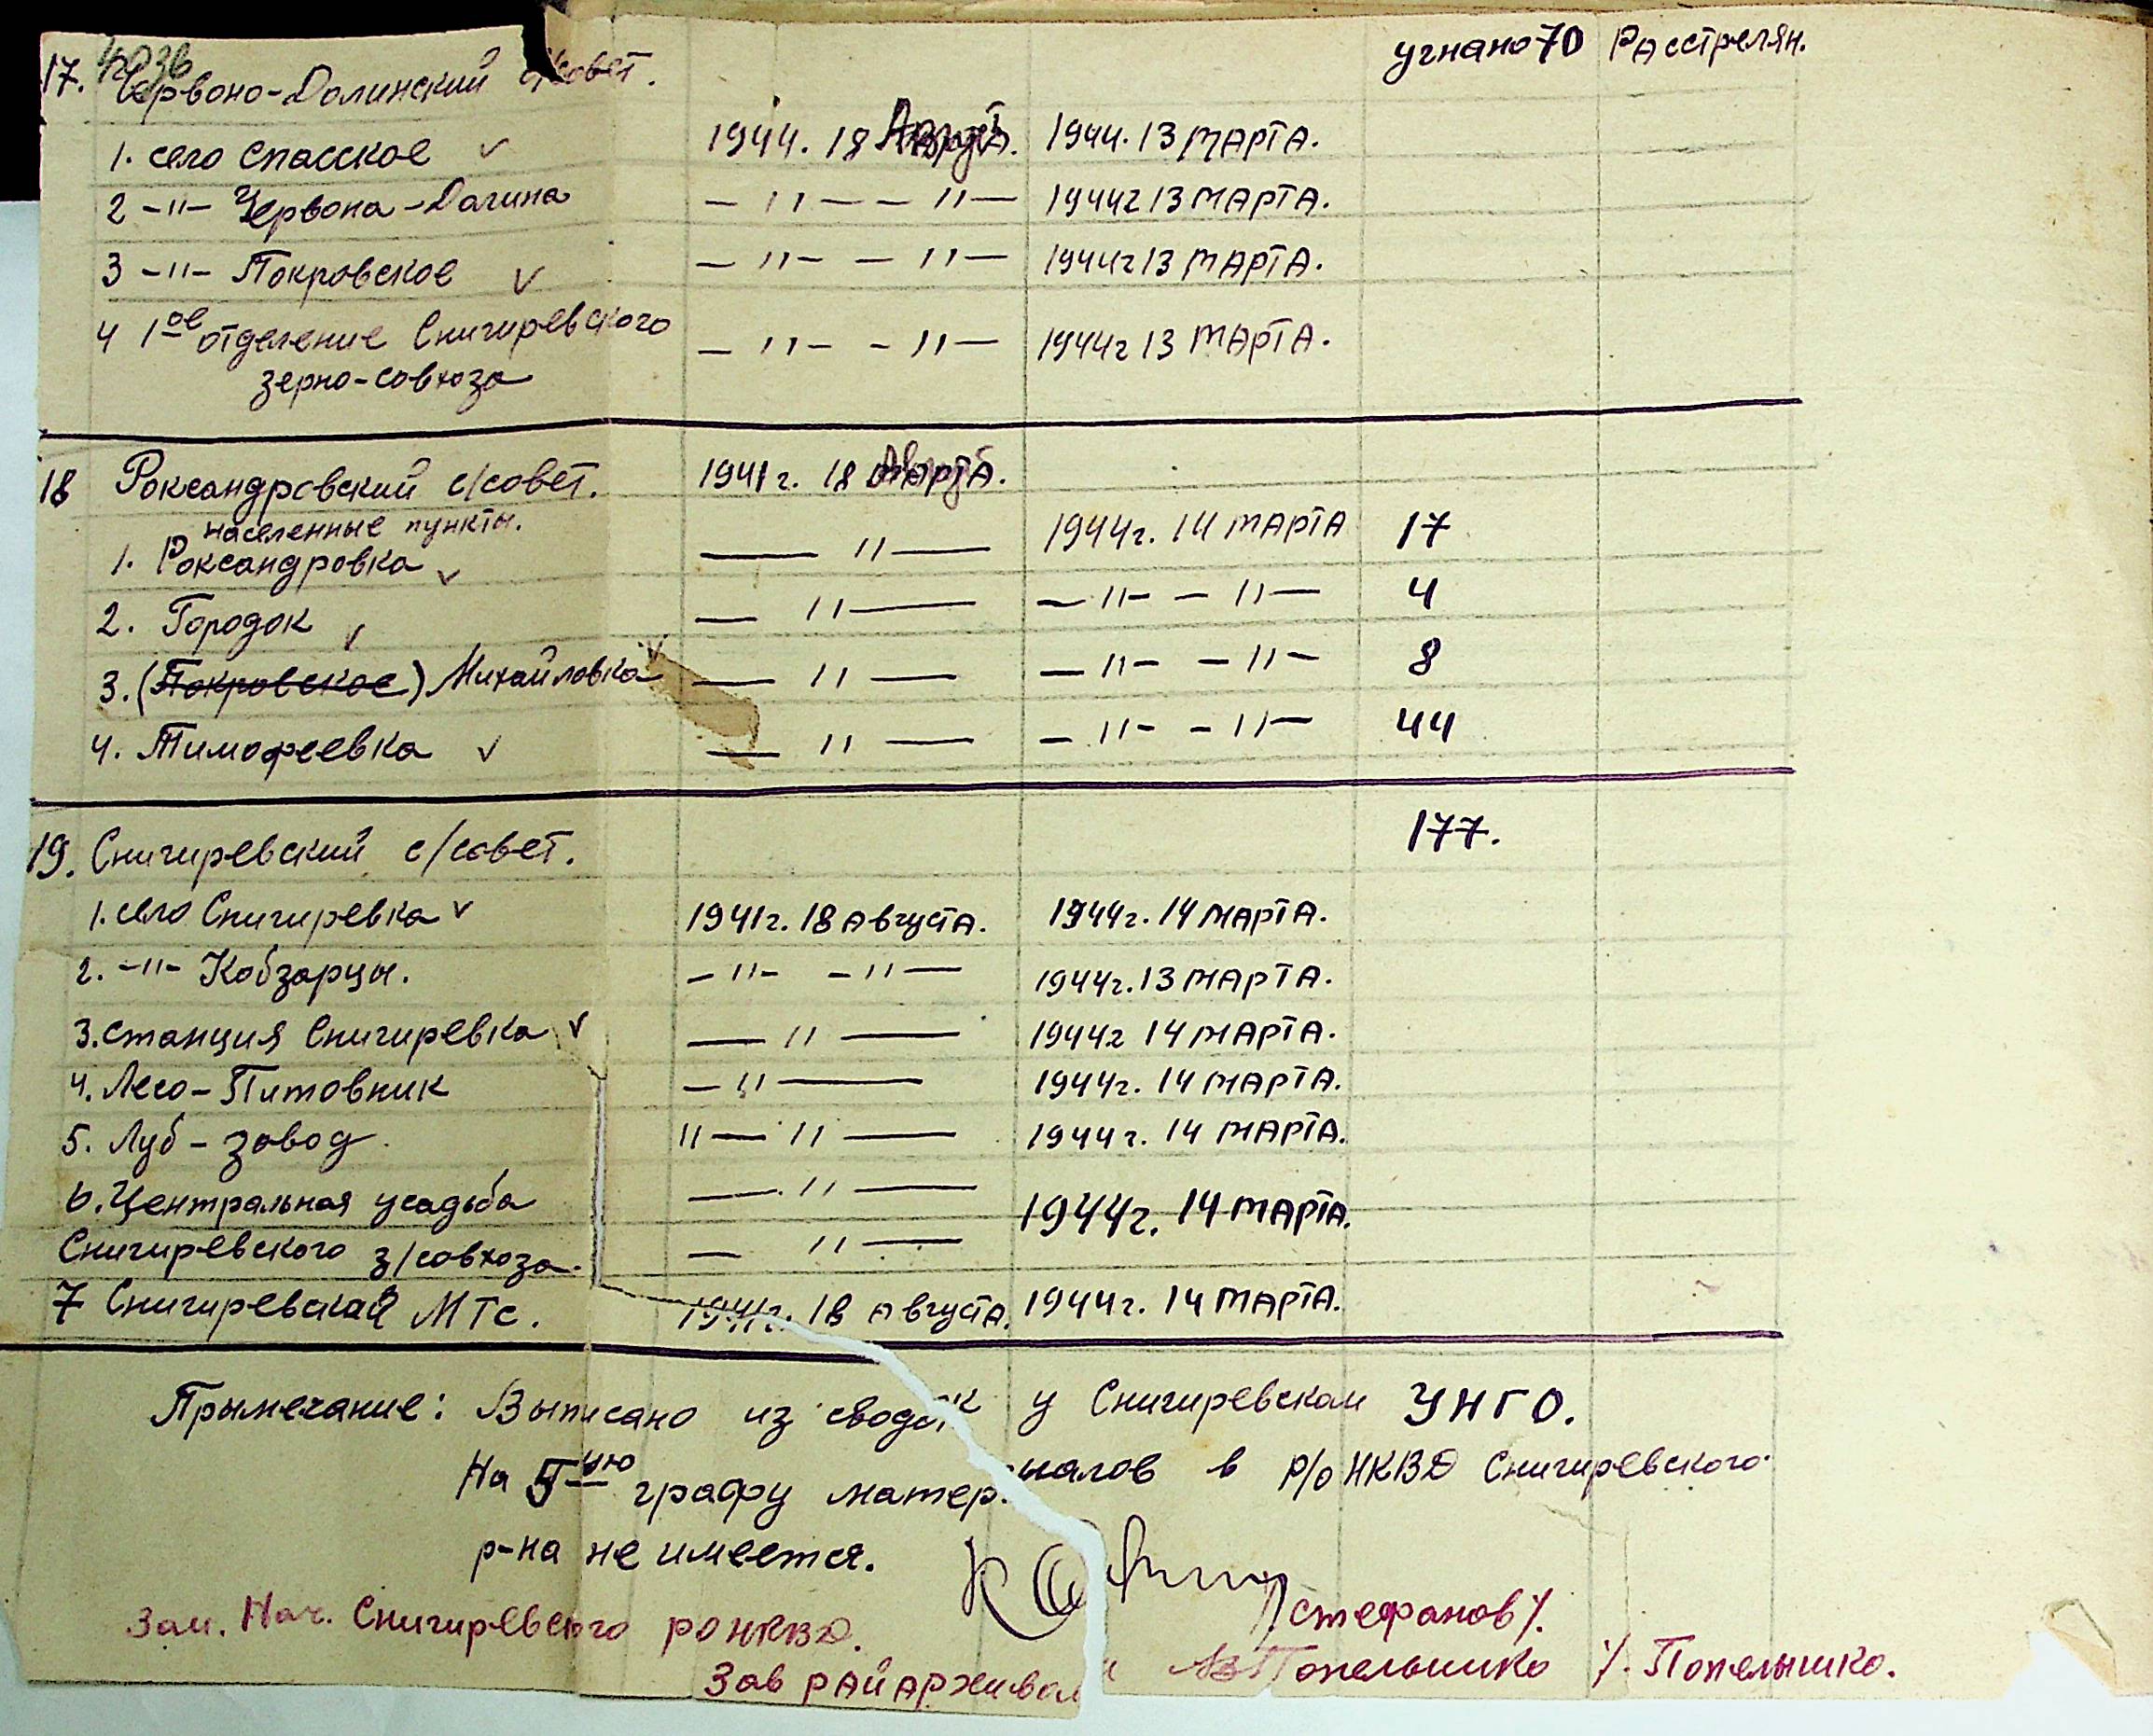 угнано 70 Расстрелян.
17. Червоно-Долинский с/совет.
1. село Спасское ✓ 1944. 18 Августа. 1944. 13 марта.
2 -"- Червона-Долина — " — — " — 1944г 13 марта.
3 -"- Покровское ✓ — " — — " — 1944г 13 марта.
4 1ое отделение Снигиревского — " — — " — 1944г 13 марта.
зерно-совхоза
18 Роксандровский с/совет. 1941г. 18
населенные пункты.
1. Роксандровка ✓ — " — 1944г. 14 марта 17
2. Городок ✓ — " — — " — — " — 4
3. (Покровское) Михайловка ✓ — " — — " — — " — 8
4. Тимофеевка ✓ — " — — " — — " — 44
19. Снигиревский с/совет. 177.
1. село Снигиревка ✓ 1941г. 18 августа. 1944г. 14 марта.
2. -"- Кобзарцы. — " — — " — 1944г. 13 марта.
3. станция Снигиревка ✓ — " — 1944г 14 марта.
4. Лесо-Питовник — " — 1944г. 14 марта.
5. Луб-завод. " — " — 1944г. 14 марта.
6. Центральная усадьба — " — 1944г. 14 марта.
Снигиревского з/совхоза. — " —
7 Снигиревская МТС. 1941г. 18 августа. 1944г. 14 марта.
Прымечание: Выписано из сводок у Снигиревском УНГО.
На 5-ую графу матер. иалов в р/о НКВД Снигиревского
р-на не имеется.
Зам. Нач. Снигиревского РОНКВД. /Стефанов/.
Зав райархивом Попельшико /. Попельшико.